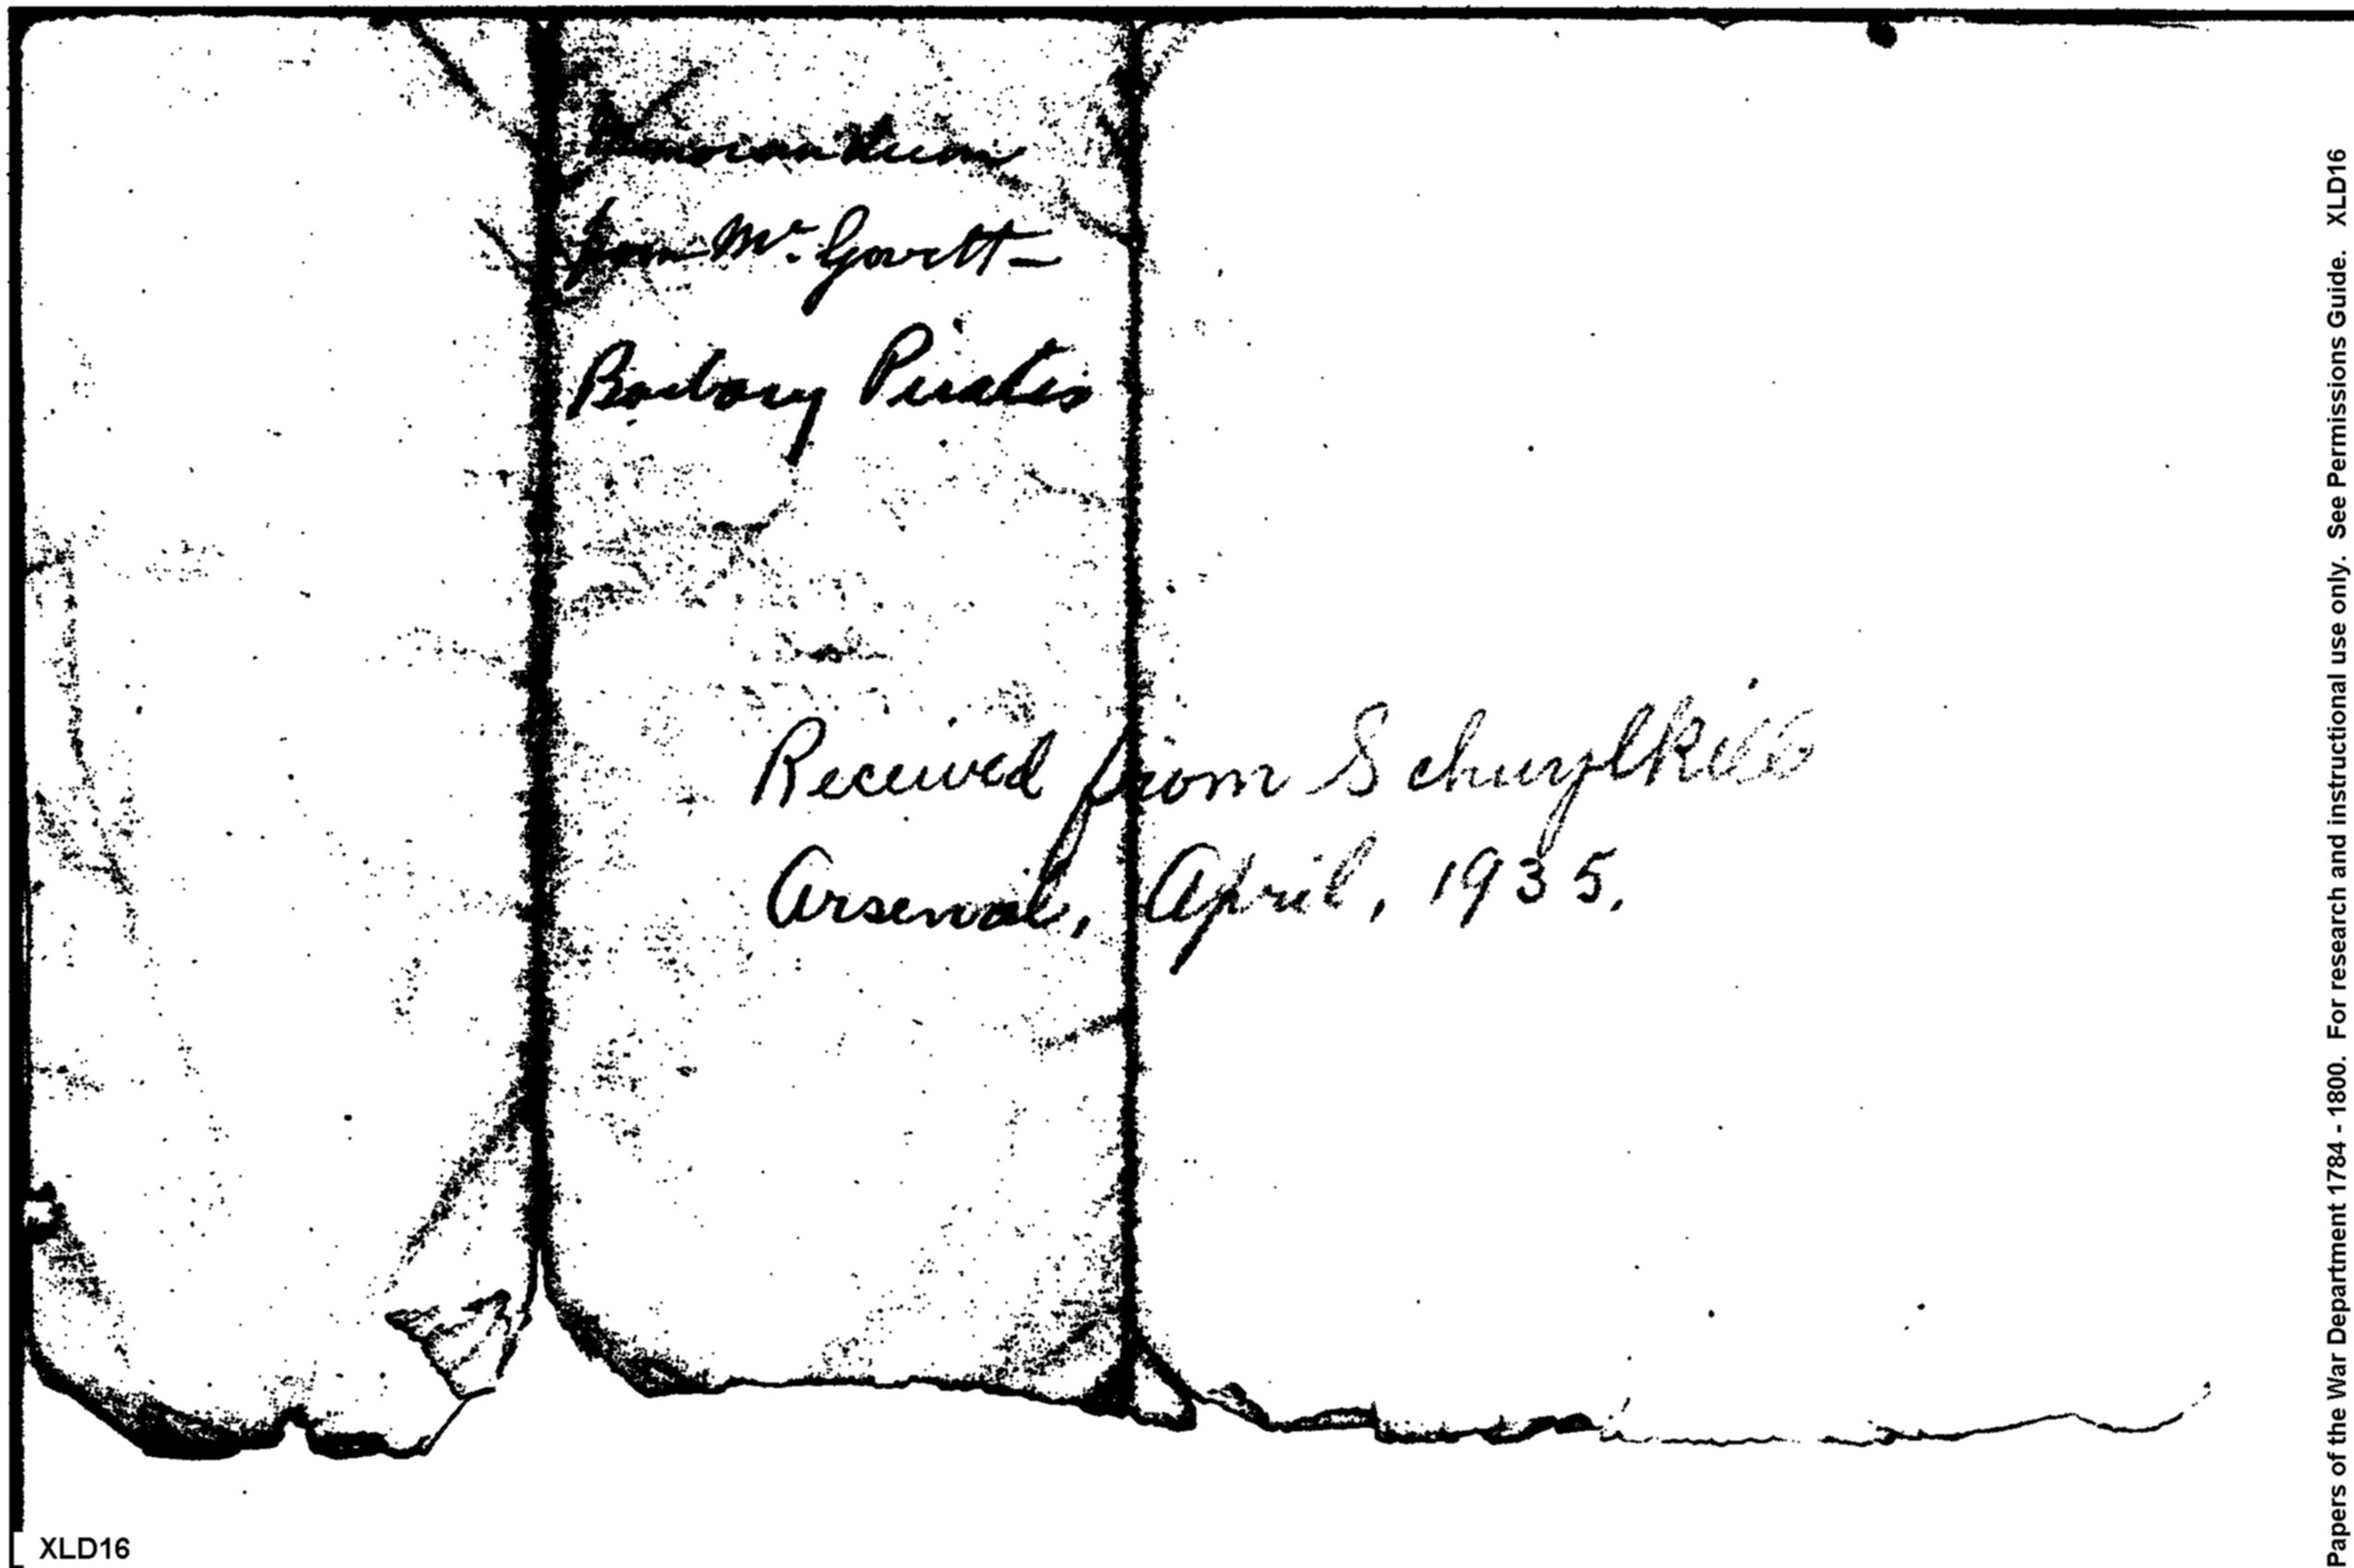 Memorandum
from Mr. Govett —
Barbary Pirates
Received from Schuylkill
Arsenal, April, 1935.
XLD16
Papers of the War Department 1784 - 1800. For research and instructional use only. See Permissions Guide. XLD16